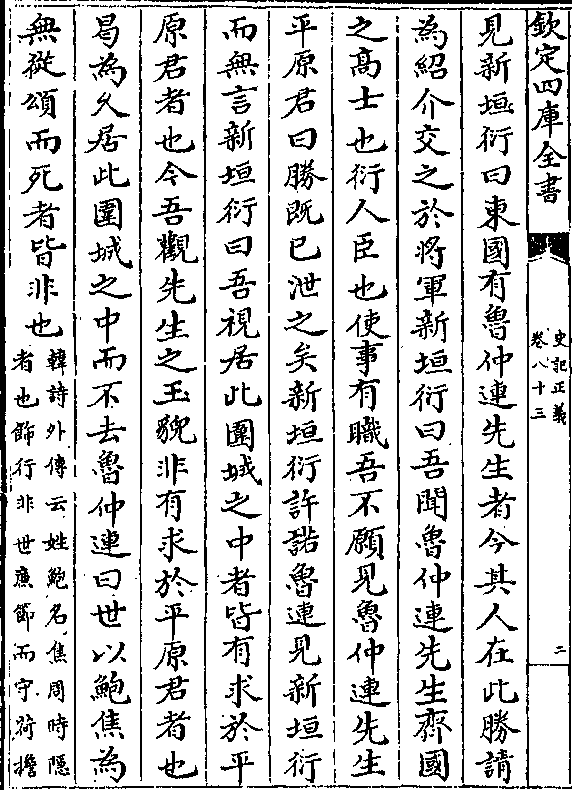 欽定四庫全書
史記正義
卷八十三
二
見新垣衍曰東國有魯仲連先生者今其人在此勝請
為紹介交之於將軍新垣衍曰吾聞魯仲連先生齊國
之高士也衍人臣也使事有職吾不願見魯仲連先生
平原君曰勝既已泄之矣新垣衍許諾魯連見新垣衍
而無言新垣衍曰吾視居此圍城之中者皆有求於平
原君者也今吾觀先生之玉貌非有求於平原君者也
曷為乆居此圍城之中而不去魯仲連曰世以鮑焦為
無從頌而死者皆非也
韓詩外傳云姓鮑名焦周時隱
者也飾行非世亷節而守荷擔